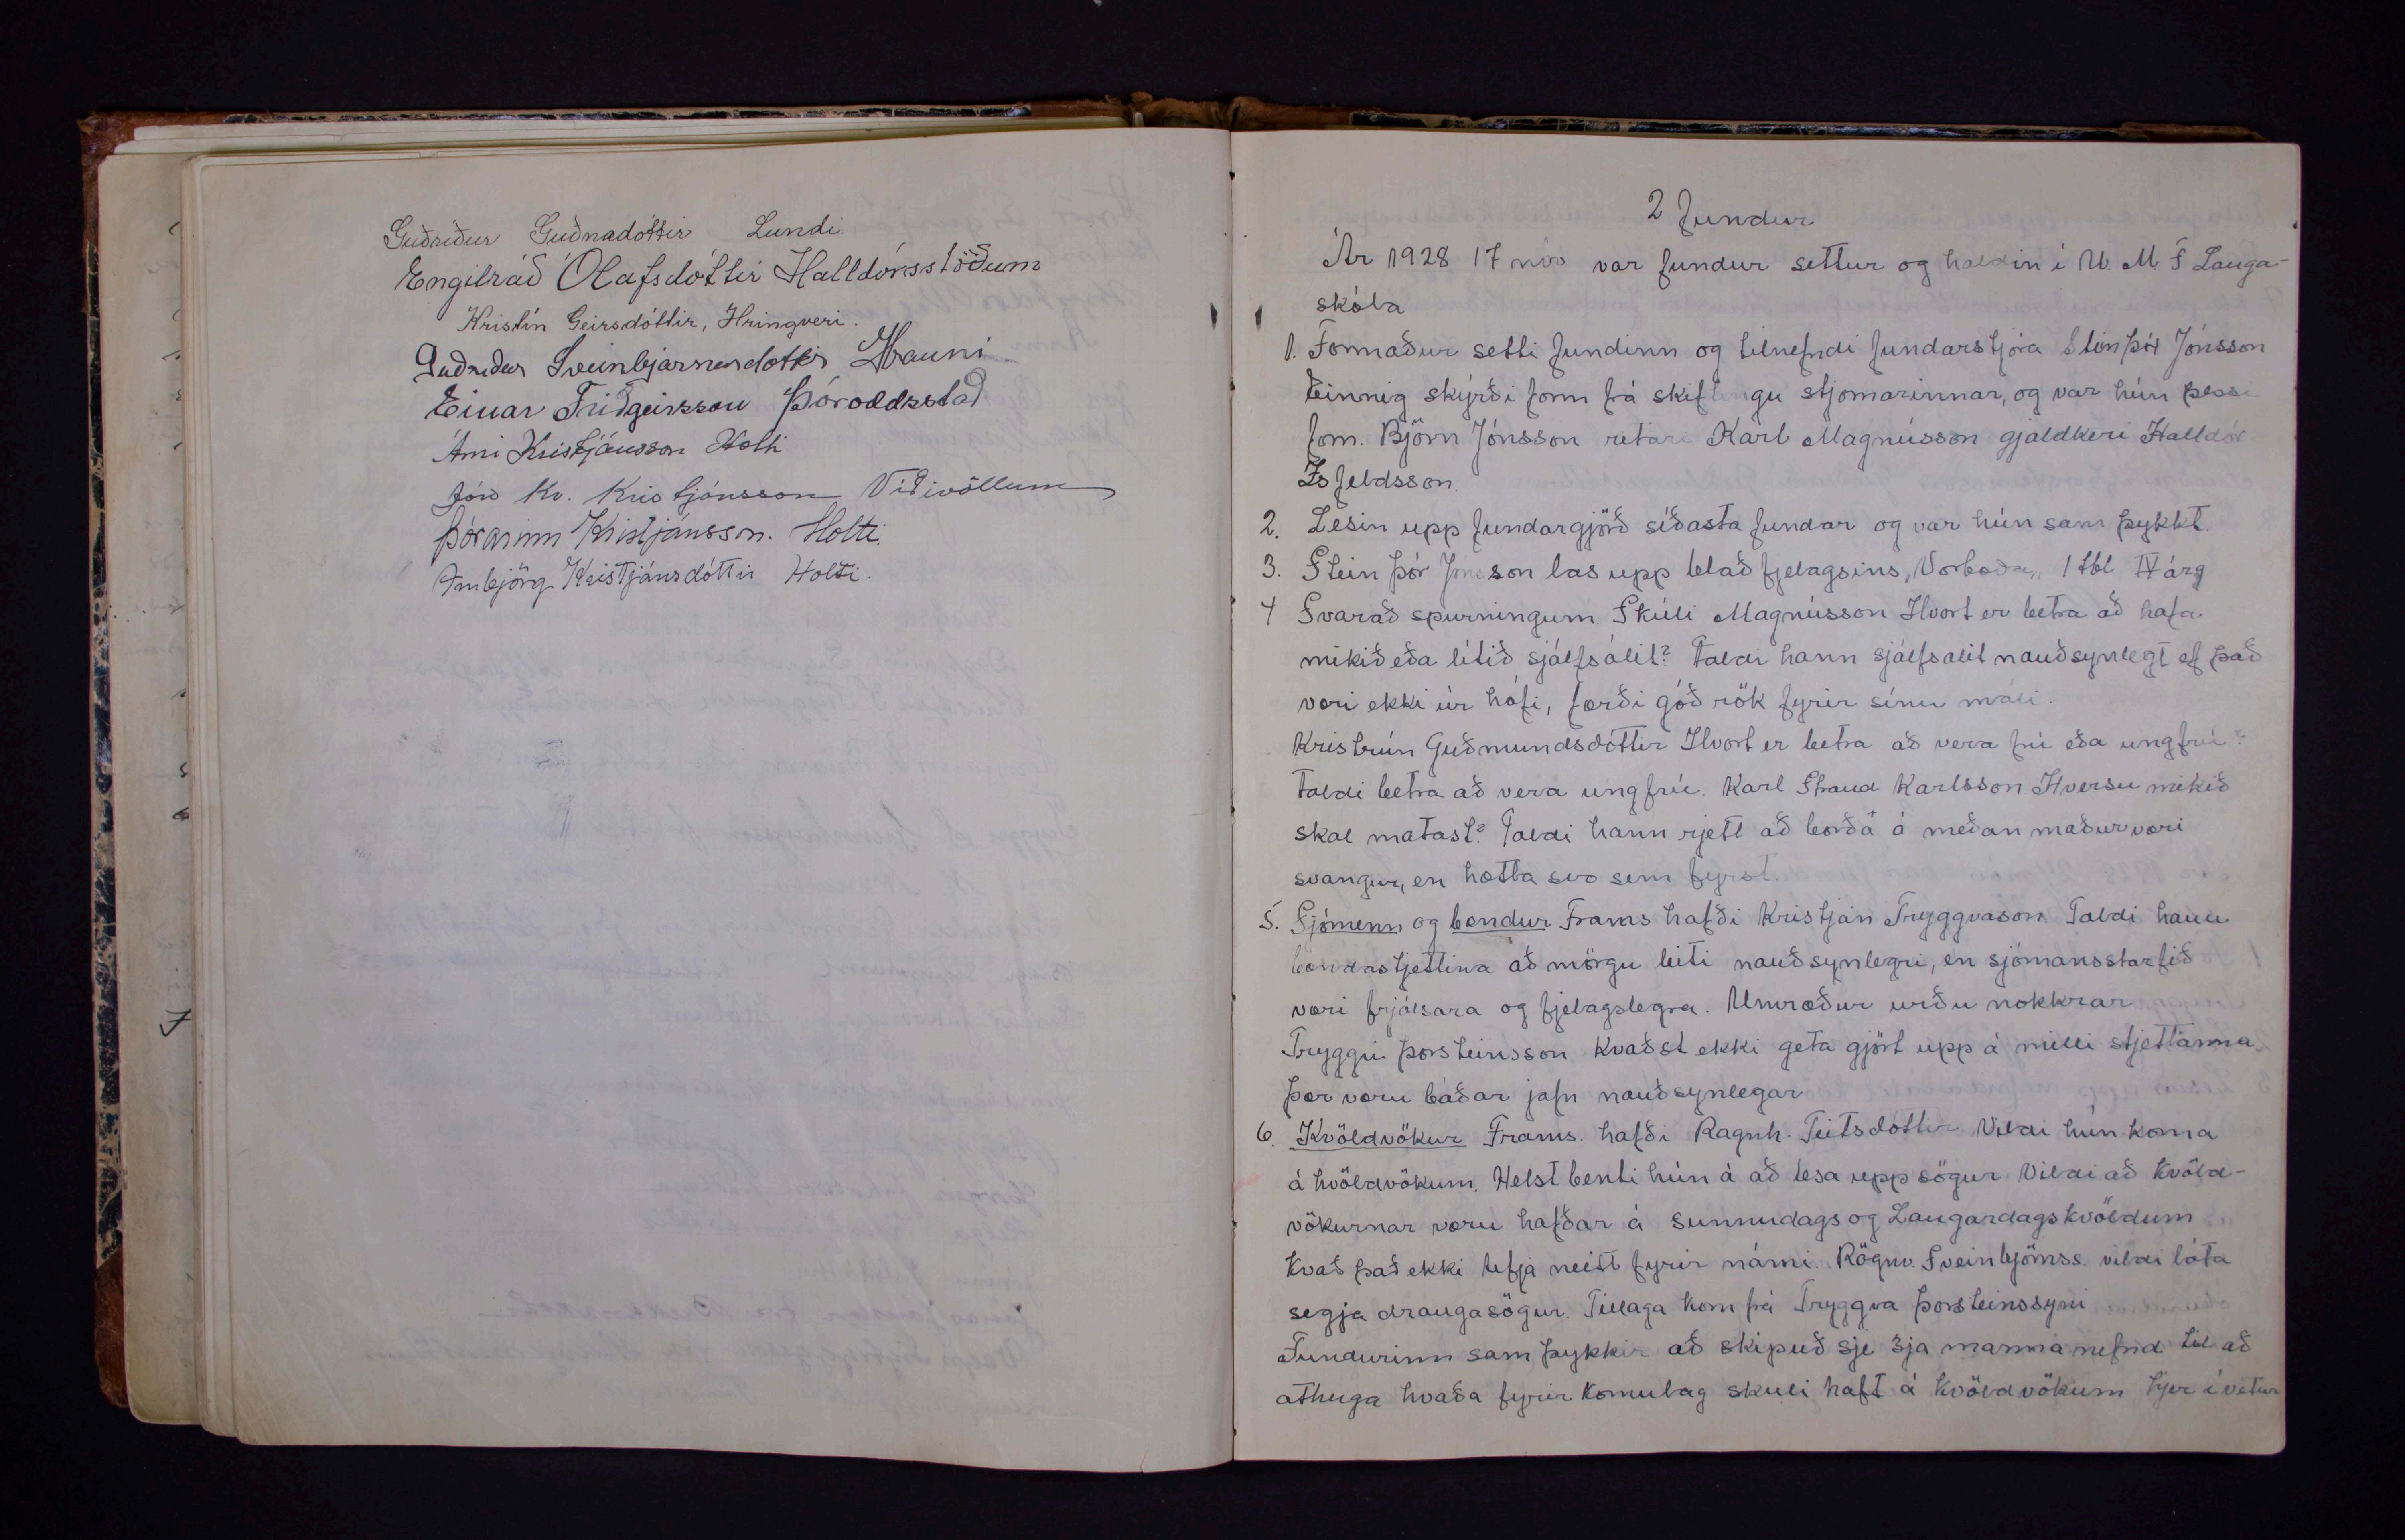 Guðríður Guðnadóttir Lundi.
Engilráð Ólafsdóttir Halldórsstöðum
Kristín Geirsdóttir, Hringveri.
Guðríður Sveinbjarnardóttir Hrauni
Einar Friðgeirsson Þóroddsstað
Árni Kristjánsson Holti
Jón Kr. Kristjánsson Víðivöllum
Þórarinn Kristjánsson. Holti.
Arnbjörg Kristjánsdóttir Holti.
2 fundur
Ár 1928 17 nóv var fundur settur og haldin í U. M. F Lauga-
skóla
1. Formaður setti fundinn og tilnefndi fundarstjóra Steinþór Jónsson
Einnig skýrði form frá skiftingu stjornarinnar, og var hún þessi
form. Björn Jónsson ritari Karl Magnússon gjaldkeri Halldór
Ísfeldsson.
2. Lesin upp fundargjörð síðasta fundar og var hún samþykkt.
3. Steinþór Jónsson las upp blað fjelagsins, "Vorboða" 1 tbl IV árg
4 Svarað spurningum. Skúli Magnússon Hvort er betra að hafa
mikið eða lítið sjálfsálit? Taldi hann sjálfsalit nauðsynlegt ef það
væri ekki úr hófi, færði góð rök fyrir sínu máli.
Kristrún Guðmundsdóttir Hvort er betra að vera frú eða ungfrú?
Taldi betra að vera ungfrú. Karl Strand Karlsson Hversu mikið
skal matast? Taldi hann rjett að borða á meðan maður væri
svangur, en hætta svo sem fyrst.
5. Sjómenn og bændur Frams hafði Kristján Tryggvason Taldi hann
bændastjettina að mörgu leiti nauðsynlegri, en sjómansstarfið
væri frjálsara og fjelagslegra. Umræður urðu nokkrar
Tryggvi Þorsteinsson kvaðst ekki geta gjört upp á milli stjettanna.
þær væru báðar jafn nauðsynlegar
6. Kvöldvökur Frams. hafði Ragnh. Teitsdóttir Vildi hún koma
á kvöldvökum. Helst benti hún á að lesa upp sögur Vildi að kvöld-
vökurnar væru hafðar á sunnudags og Laugardagskvöldum
kvað það ekki tefja neitt fyrir námi. Rögnv. Sveinbjörnss vildi láta
segja draugasögur. Tillaga kom frá Tryggva Þorsteinssyni
Fundurinn samþykkir að skipuð sje 3ja manna nefnd til að
athuga hvaða fyrirkomulag skuli haft á kvöldvökum hjer í vetur